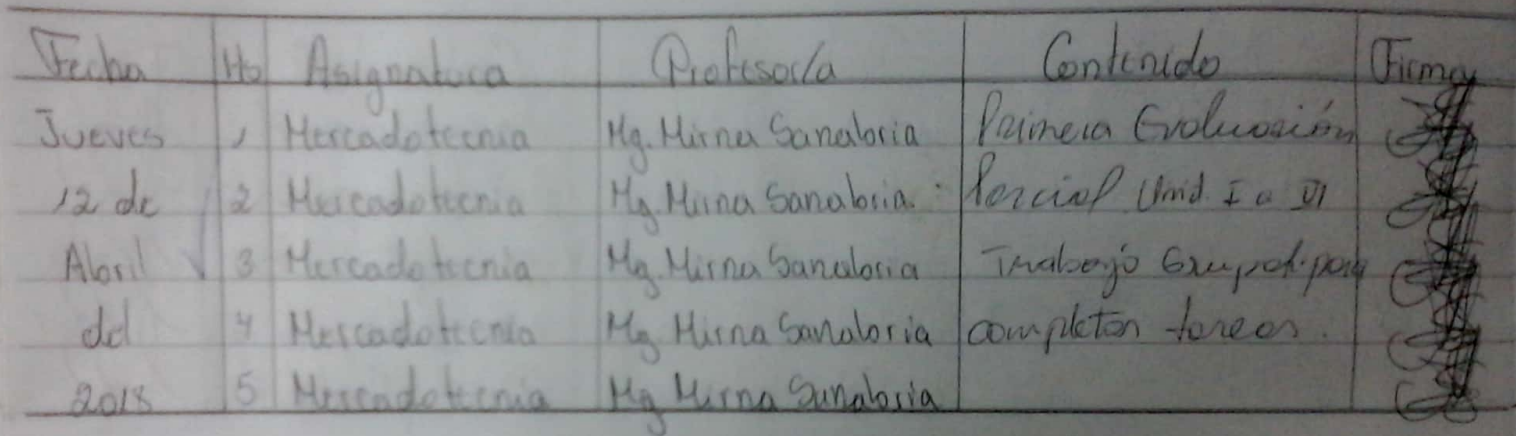 Fecha Ho Asignatura Profesor/a Contenido Firma
Jueves 1 Mercadotecnia Mg. Mirna Sanabria Primera Evaluación
12 de 2 Mercadotecnia Mg. Mirna Sanabria. Parcial Unid. I a VI
Abril 3 Mercadotecnia Mg. Mirna Sanabria Trabajo Grupal para
del 4 Mercadotecnia Mg Mirna Sanabria completar tareas.
2018 5 Mercadotecnia Mg Mirna Sanabria